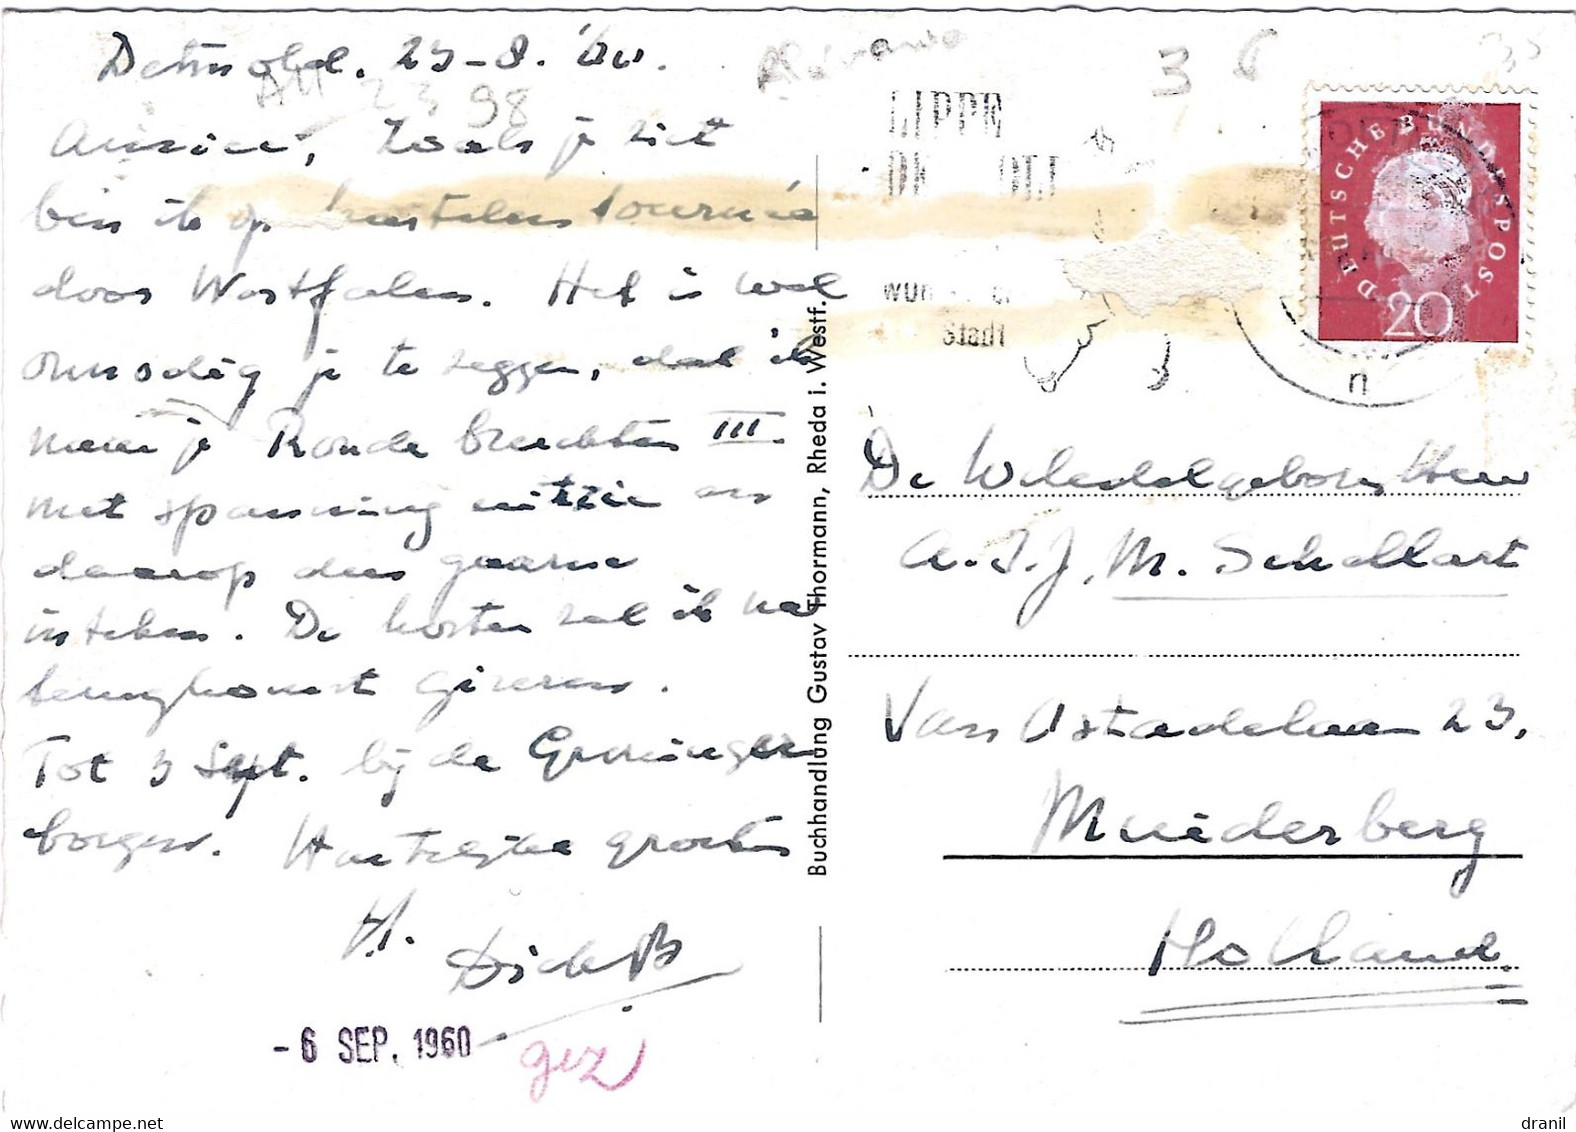 Detmold. 23-8. '60.
Amice, Zoals je ziet
bin ik op kastelen tournée
door Westfalen. Het is wel
onnodig je te zeggen, dat ik
naar je Ronde berichten III
met spanning uitzie en
daarop dus gaarne
inteken. De kosten zal ik na
terugkomst gireren.
Tot 3 Sept. bij de Groninger
borgen. Hartelijke groeten
Dick B
- 6 SEP. 1960
gez
Buchhandlung Gustav Thormann, Rheda i. Westf.
3 6
35
98
LIPPE
Stadt
DEUTSCHE BUNDESPOST
20
n
De Weledelgeboren Heer
A.J.J.M. Schellart
Van Ostadelaan 23,
Muiderberg
Holland.
dranil